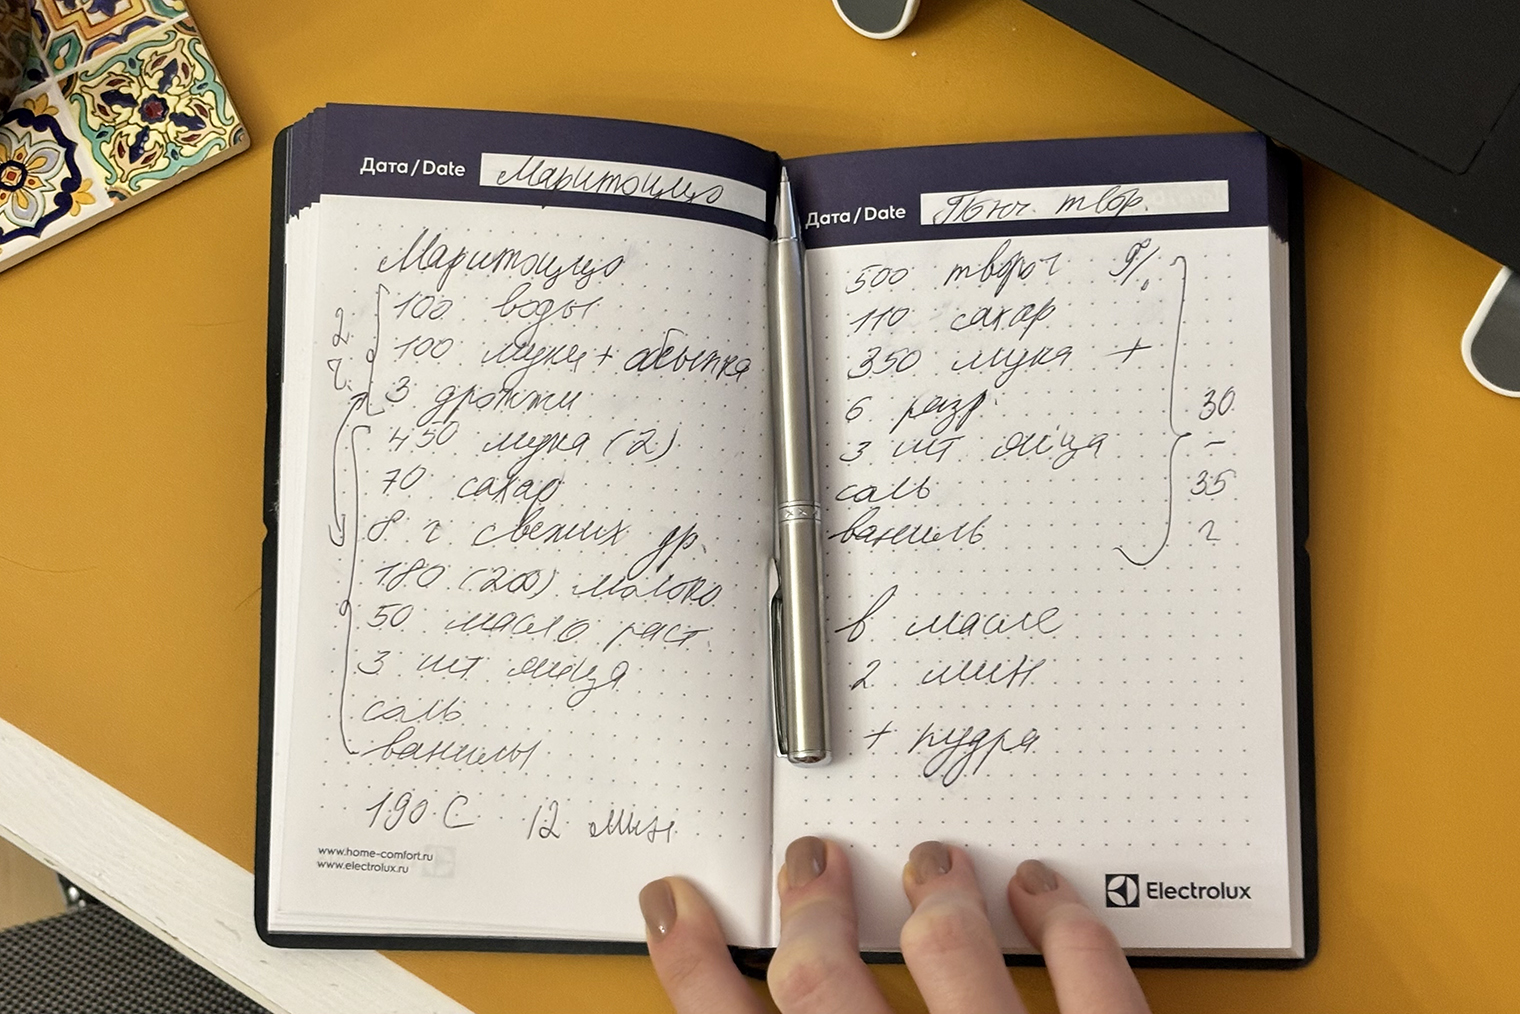 Дата / Date Маритоццо
Маритоццо
100 воды
100 муки + обсыпка
3 дрожжи
2
ч.
450 мука (2)
70 сахар
8 г свежих др.
180 (200) молоко
50 масло раст.
3 шт яйца
соль
ваниль
190 С 12 мин
www.home-comfort.ru
www.electrolux.ru
Дата / Date Понч. твор.
500 творог 9%
110 сахар
350 мука +
6 разр.
3 шт яйца
соль
ваниль
30
-
35
г
в масле
2 мин
+ пудра
Electrolux